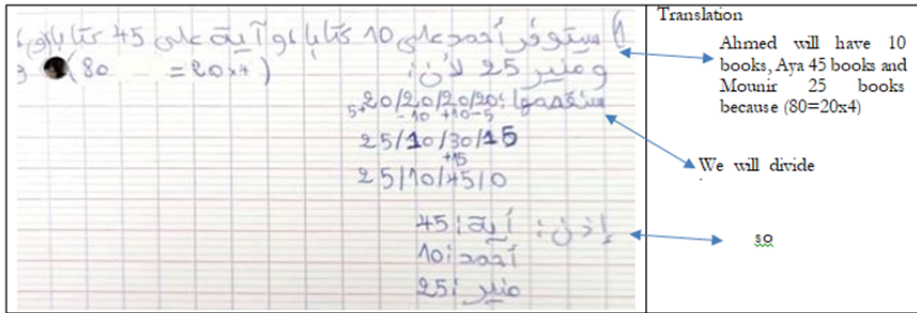 سيتوفر أحمد على 10 كتابا، وآية على 45 كتابا
(80 = 20x4)
ومنير 25 لأن:
20/20/20/20
5+ -10 +10 -5
25/10/30/15
+15
25/10/45/0
إذن: آية: 45
أحمد: 10
منير: 25
Translation
Ahmed will have 10
books, Aya 45 books and
Mounir 25 books
because (80=20x4)
We will divide
so